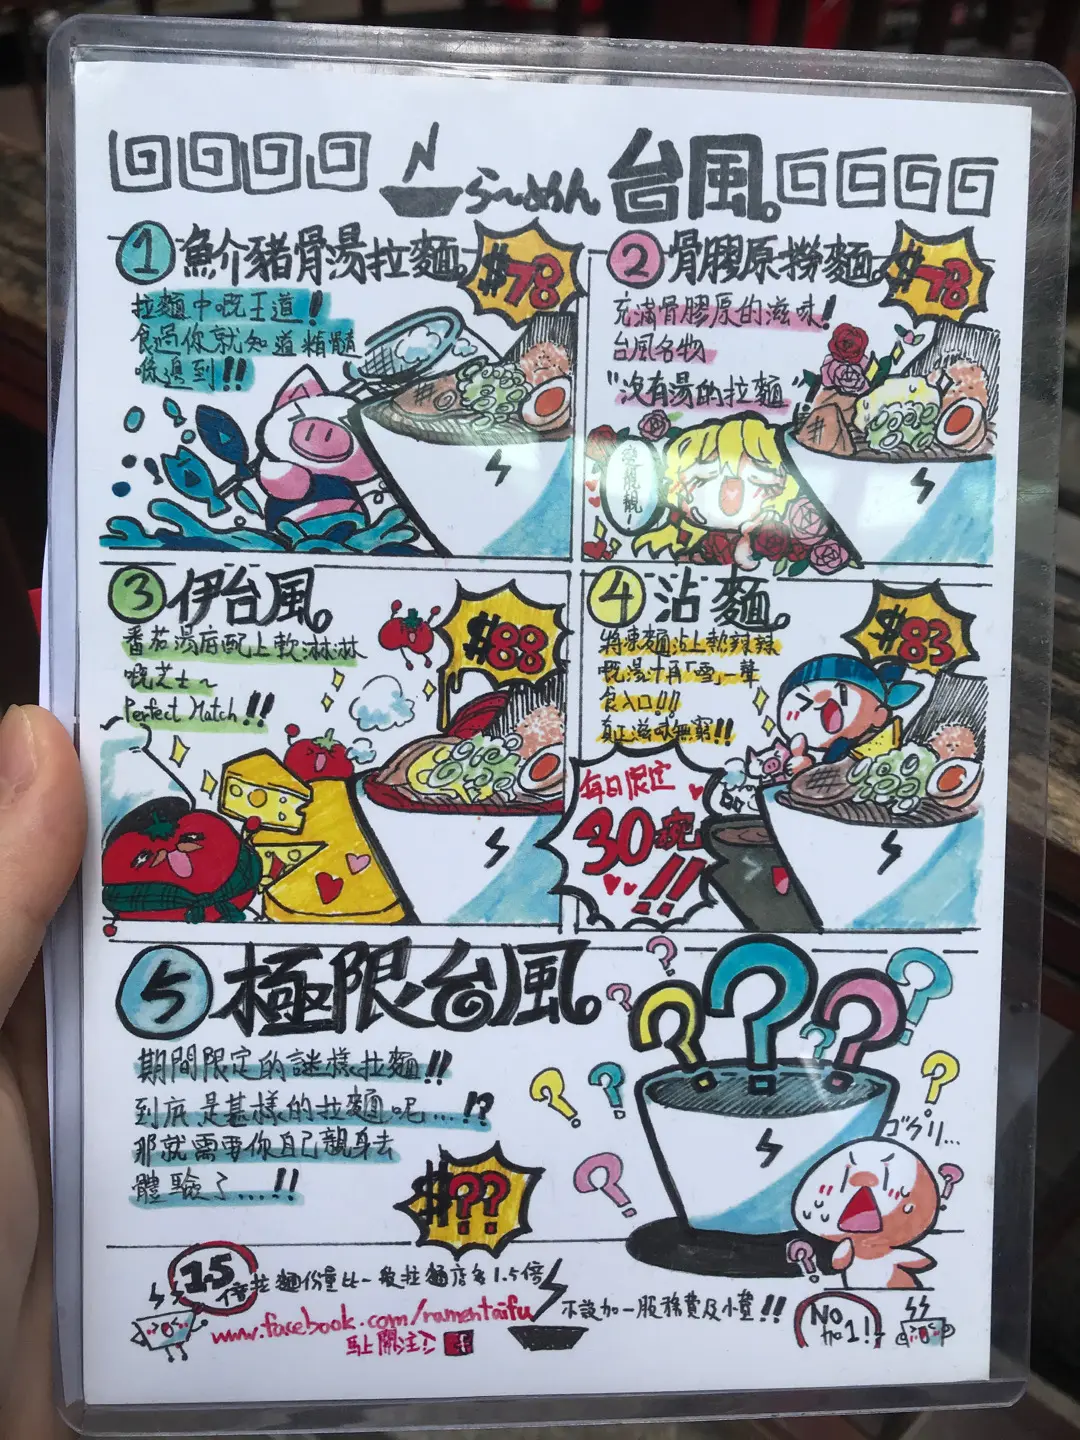 らーめん 台風。
1 魚介豬骨湯拉麵。 $78
拉麵中嘅王道!
食過你就知道精髓
喺邊到!!
2 骨膠原撈麵。 $78
充滿骨膠原的滋味!
台風名物
"沒有湯的拉麵"
變靚靚~
3 伊台風。 $88
番茄湯底配上軟淋淋
嘅芝士~
Perfect Match!!
4 沾麵。 $83
將凍麵沾上熱辣辣
嘅湯汁再「雪」一聲
食入口!!!
真正滋味無窮!!
每日限定
30碗
!!
5 極限台風。
期間限定的謎樣拉麵!!
到底是甚樣的拉麵呢...!?
那就需要你自己親身去
體驗了...!!
$??
ゴクリ...
1.5倍 拉麵份量比一般拉麵店多1.5倍
www.facebook.com/ramentaifu
馬上關注 f
不設加一服務費及小費!!
No no 1!